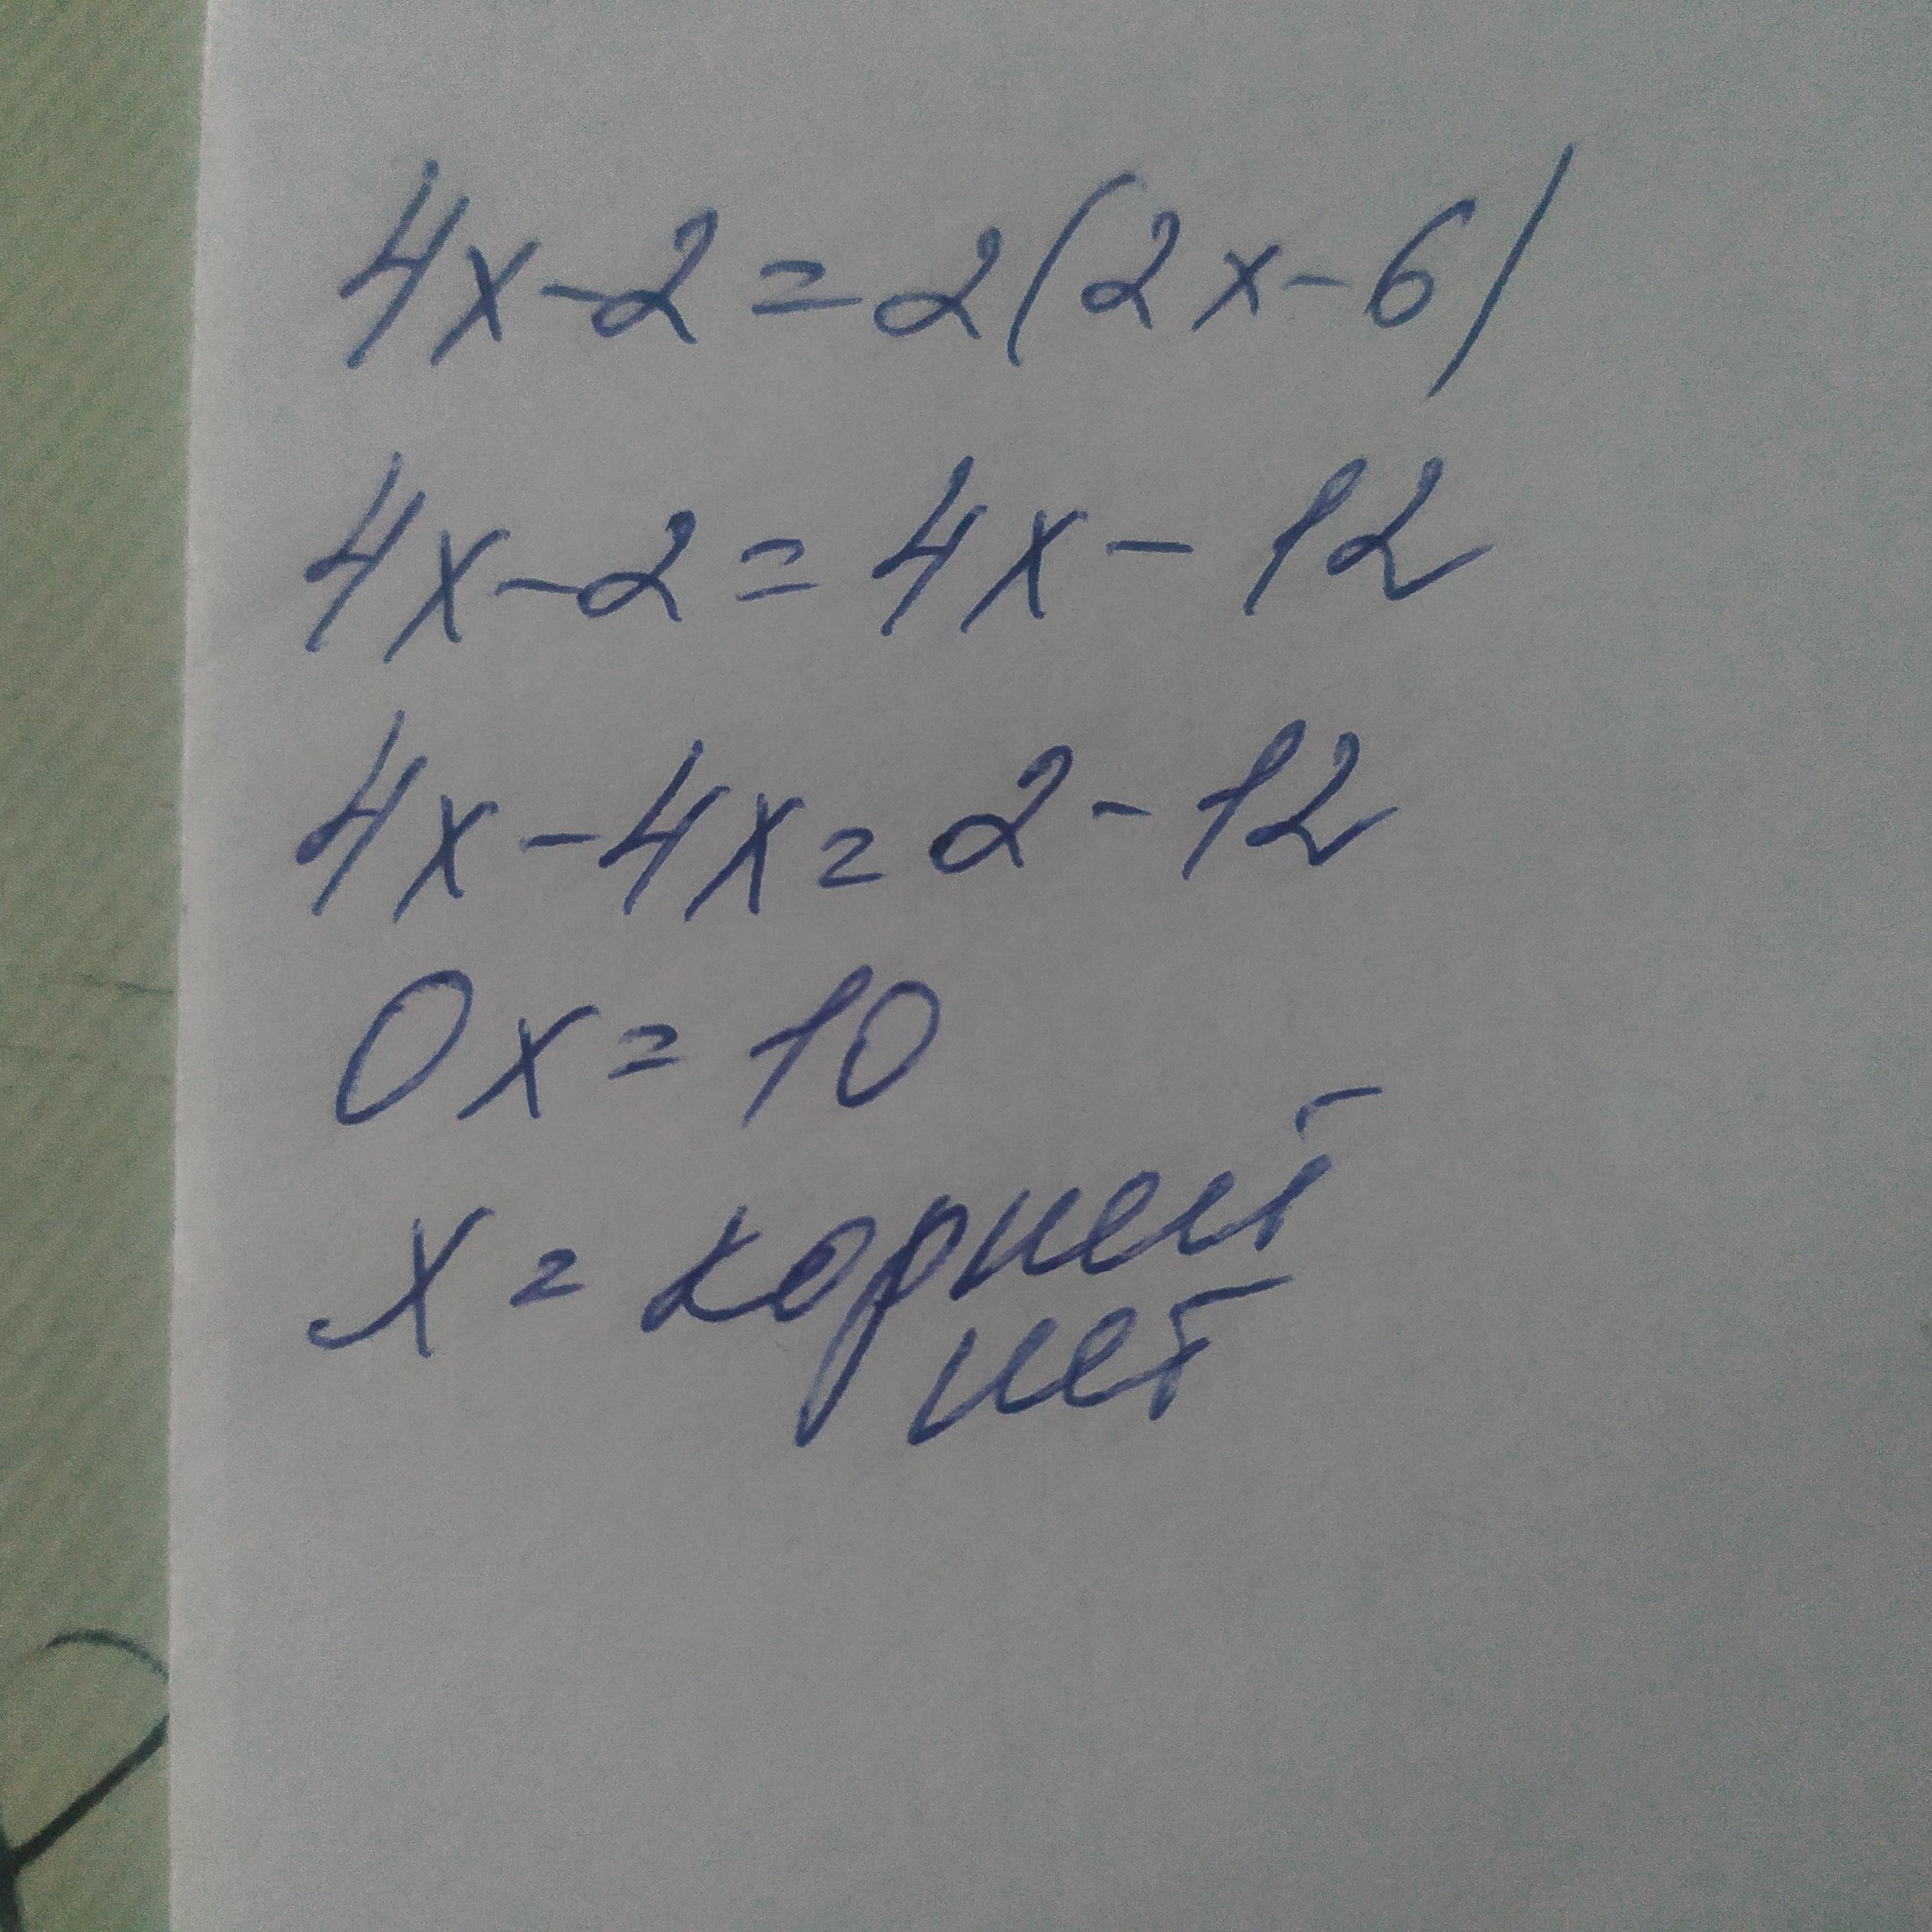 4x-2=2(2x-6)
4x-2=4x-12
4x-4x=2-12
0x=10
x=корней
нет